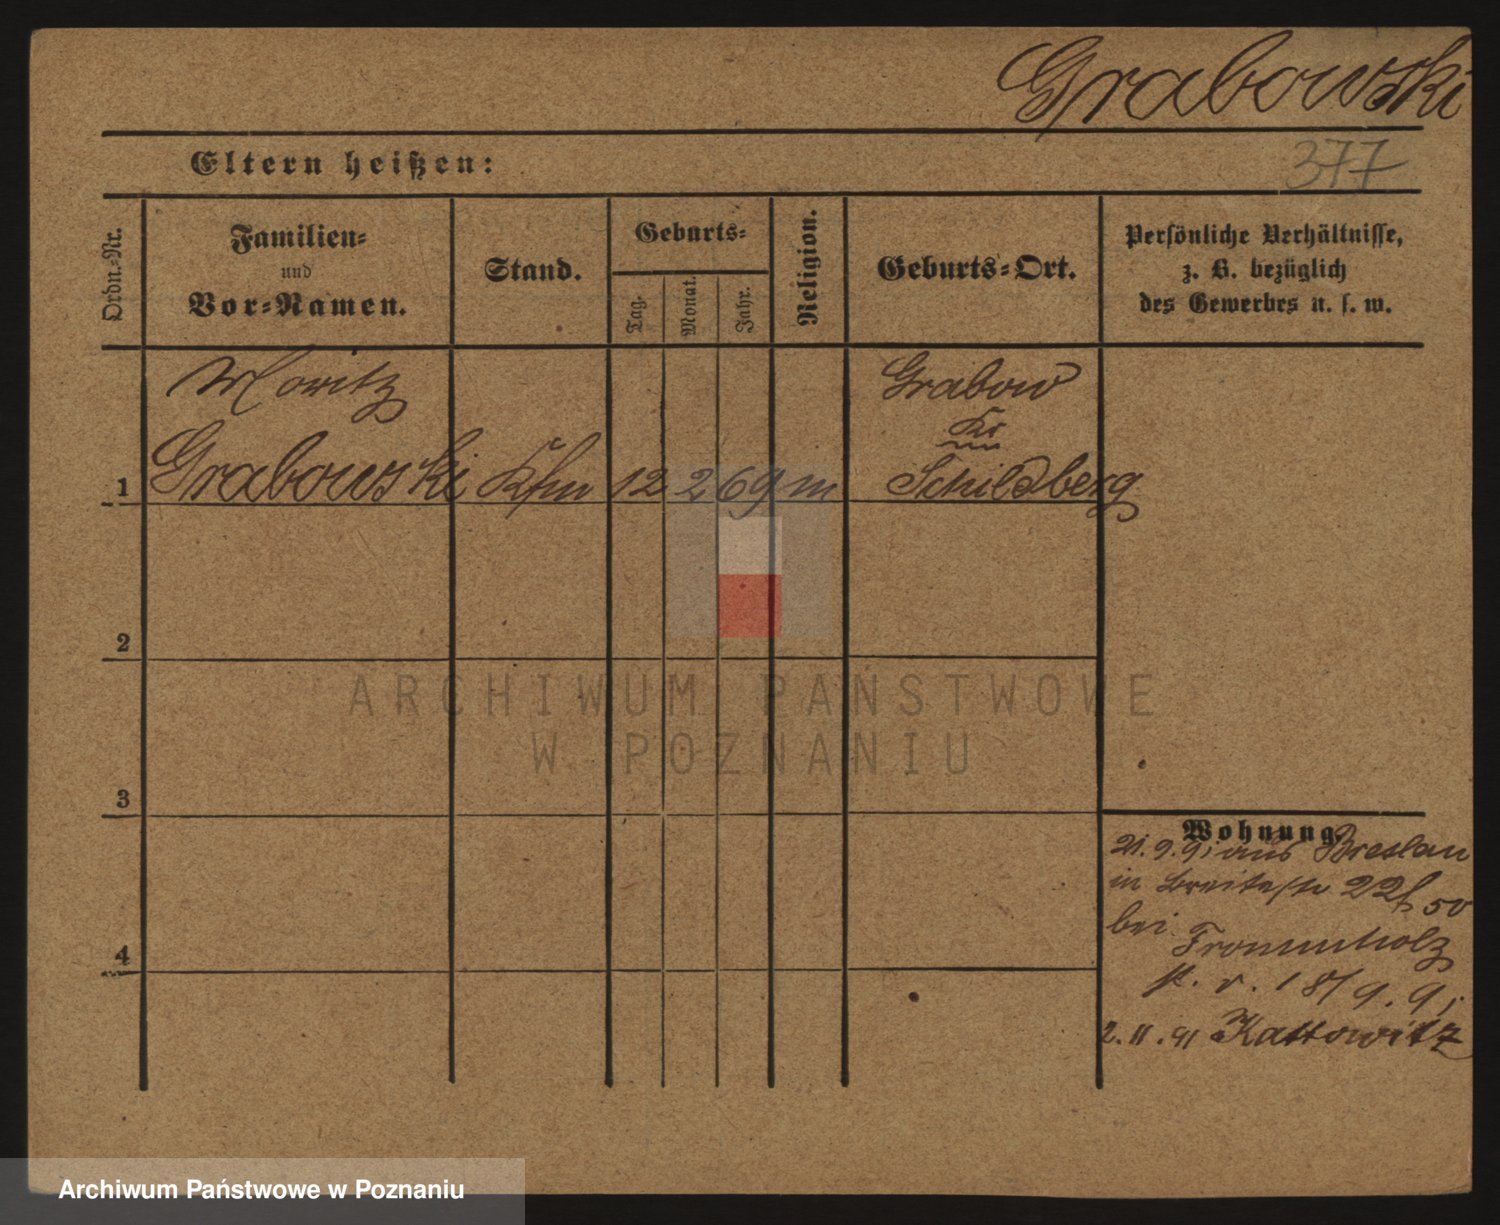 Grabowski
Eltern heißen:
377
Ordn.-Nr.
Familien-
und
Vor-Namen.
Stand.
Geburts-
Tag.
Monat.
Jahr.
Religion.
Geburts-Ort.
Persönliche Verhältnisse,
z. B. bezüglich
des Gewerbes u. s. w.
Moritz
Grabowski
Kfm
12
2
69
m
Grabow
Kr
Schildberg
1
2
3
4
Wohnung.
21.9.91 aus Breslau
in Breitestr 22
bei Frommholz
18/9.91
2.11.91 Kattowitz
ARCHIWUM PAŃSTWOWE
W POZNANIU
Archiwum Państwowe w Poznaniu